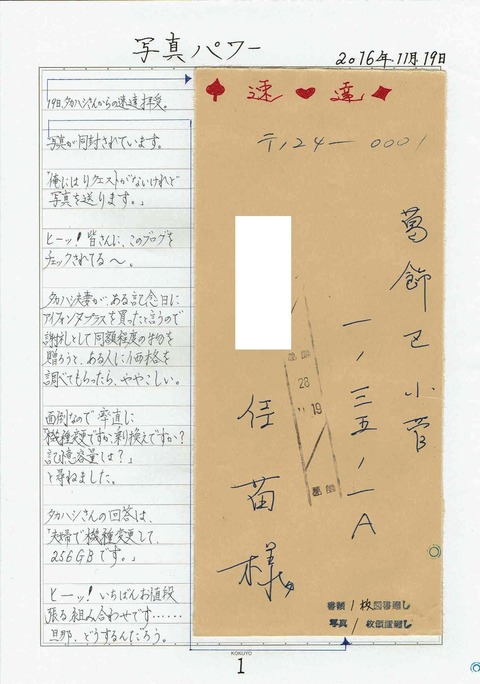 写真パワー
2016年11月19日
19日、タカハシさんからの速達拝受。
写真が同封されています。
「俺にはリクエストがないけれど
写真を送ります。」
ヒーッ！皆さんに、このブログを
チェックされてる〜。
タカハシ夫妻が、ある記念日に
アイフォンプラスを買ったと言うので
謝礼として同額程度の物を
贈ろうと、ある人に価格を
調べてもらったら、ややこしい。
面倒なので率直に
「機種変更ですか、乗換えですか？
記憶容量は？」
と尋ねました。
タカハシさんの回答は、
「夫婦で機種変更して、
256GBです。」
ヒーッ！いちばんお値段
張る組み合わせです……
旦那、どうするんだろう。
速達
〒124-0001
葛飾区小菅
一ノ三五ノ一A
苗様
葛飾
28
19
葛飾
書類 1枚
写真 1枚
KOKUYO
1